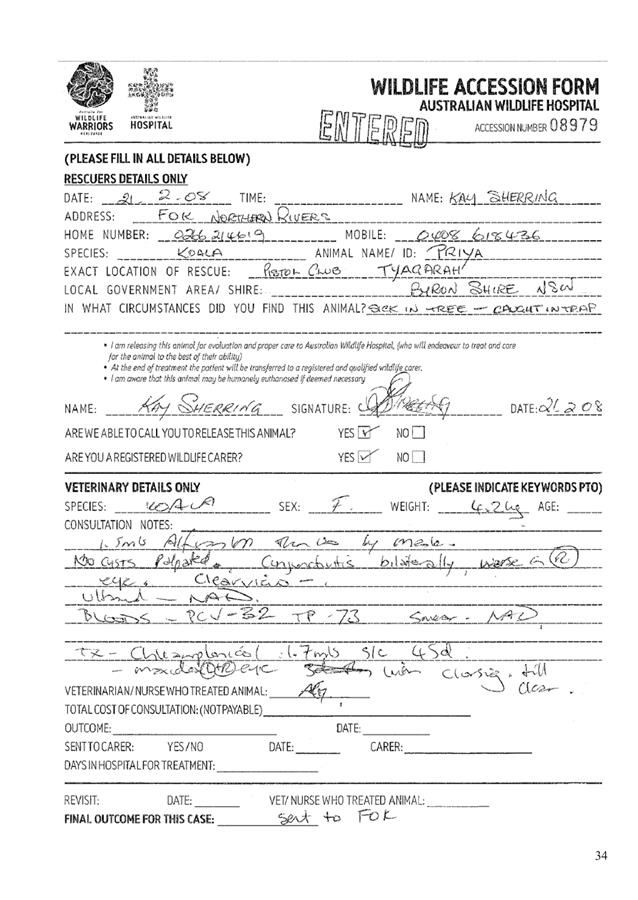 Australia Zoo
WILDLIFE
WARRIORS
WORLDWIDE
AUSTRALIAN WILDLIFE
HOSPITAL
WILDLIFE ACCESSION FORM
AUSTRALIAN WILDLIFE HOSPITAL
ENTERED
ACCESSION NUMBER 08979
(PLEASE FILL IN ALL DETAILS BELOW)
RESCUERS DETAILS ONLY
DATE: 21 2-08 TIME: NAME: KAY SHERRING
ADDRESS: FOK NORTHERN RIVERS
HOME NUMBER: 0266214619 MOBILE: 0408 618436
SPECIES: KOALA ANIMAL NAME/ ID: PRIYA
EXACT LOCATION OF RESCUE: PISTOL CLUB TYAGARAH
LOCAL GOVERNMENT AREA/ SHIRE: BYRON SHIRE NSW
IN WHAT CIRCUMSTANCES DID YOU FIND THIS ANIMAL? SICK IN TREE - CAUGHT IN TRAP
• I am releasing this animal for evaluation and proper care to Australian Wildlife Hospital, (who will endeavour to treat and care
for the animal to the best of their ability)
• At the end of treatment the patient will be transferred to a registered and qualified wildlife carer.
• I am aware that this animal may be humanely euthanased if deemed necessary
NAME: KAY SHERRING SIGNATURE: DATE: 21 2 08
ARE WE ABLE TO CALL YOU TO RELEASE THIS ANIMAL? YES NO
ARE YOU A REGISTERED WILDLIFE CARER? YES NO
VETERINARY DETAILS ONLY (PLEASE INDICATE KEYWORDS PTO)
SPECIES: KOALA SEX: F. WEIGHT: 4.2kg AGE:
CONSULTATION NOTES:
1.5mls by mask.
No cysts palpated. Conjunctivitis bilaterally, worse in (R)
eye.
- NAD.
Bloods - PCV-32 TP-73 Smear - NAD
Tx - 1.7mls s/c 45d.
eye till
clear.
VETERINARIAN/ NURSE WHO TREATED ANIMAL:
TOTAL COST OF CONSULTATION: (NOT PAYABLE)
OUTCOME: DATE:
SENT TO CARER: YES/NO DATE: CARER:
DAYS IN HOSPITAL FOR TREATMENT:
REVISIT: DATE: VET/ NURSE WHO TREATED ANIMAL:
FINAL OUTCOME FOR THIS CASE: sent to FOK
34